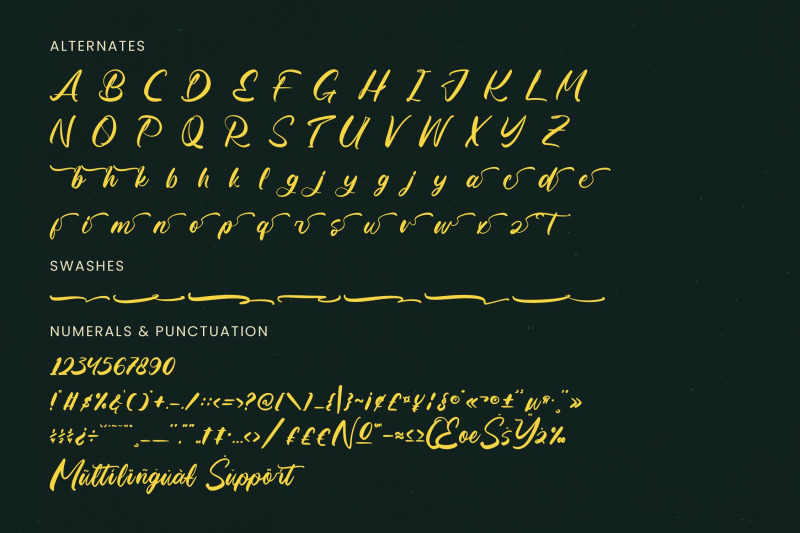 ALTERNATES
A B C D E F G H I J K L M
N O P Q R S T U V W X Y Z
b h k b h k l g j y g j y a c d e
f i m n o p q r s u v w x z T
SWASHES
NUMERALS & PUNCTUATION
1234567890
!"#$%&'()*+,-./:;<=>?@[\]_{|}~¡¢£¤¥¦§
Multilingual Support